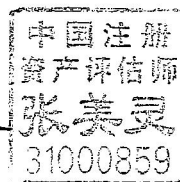 中国注册
资产评估师
张美灵
31000859